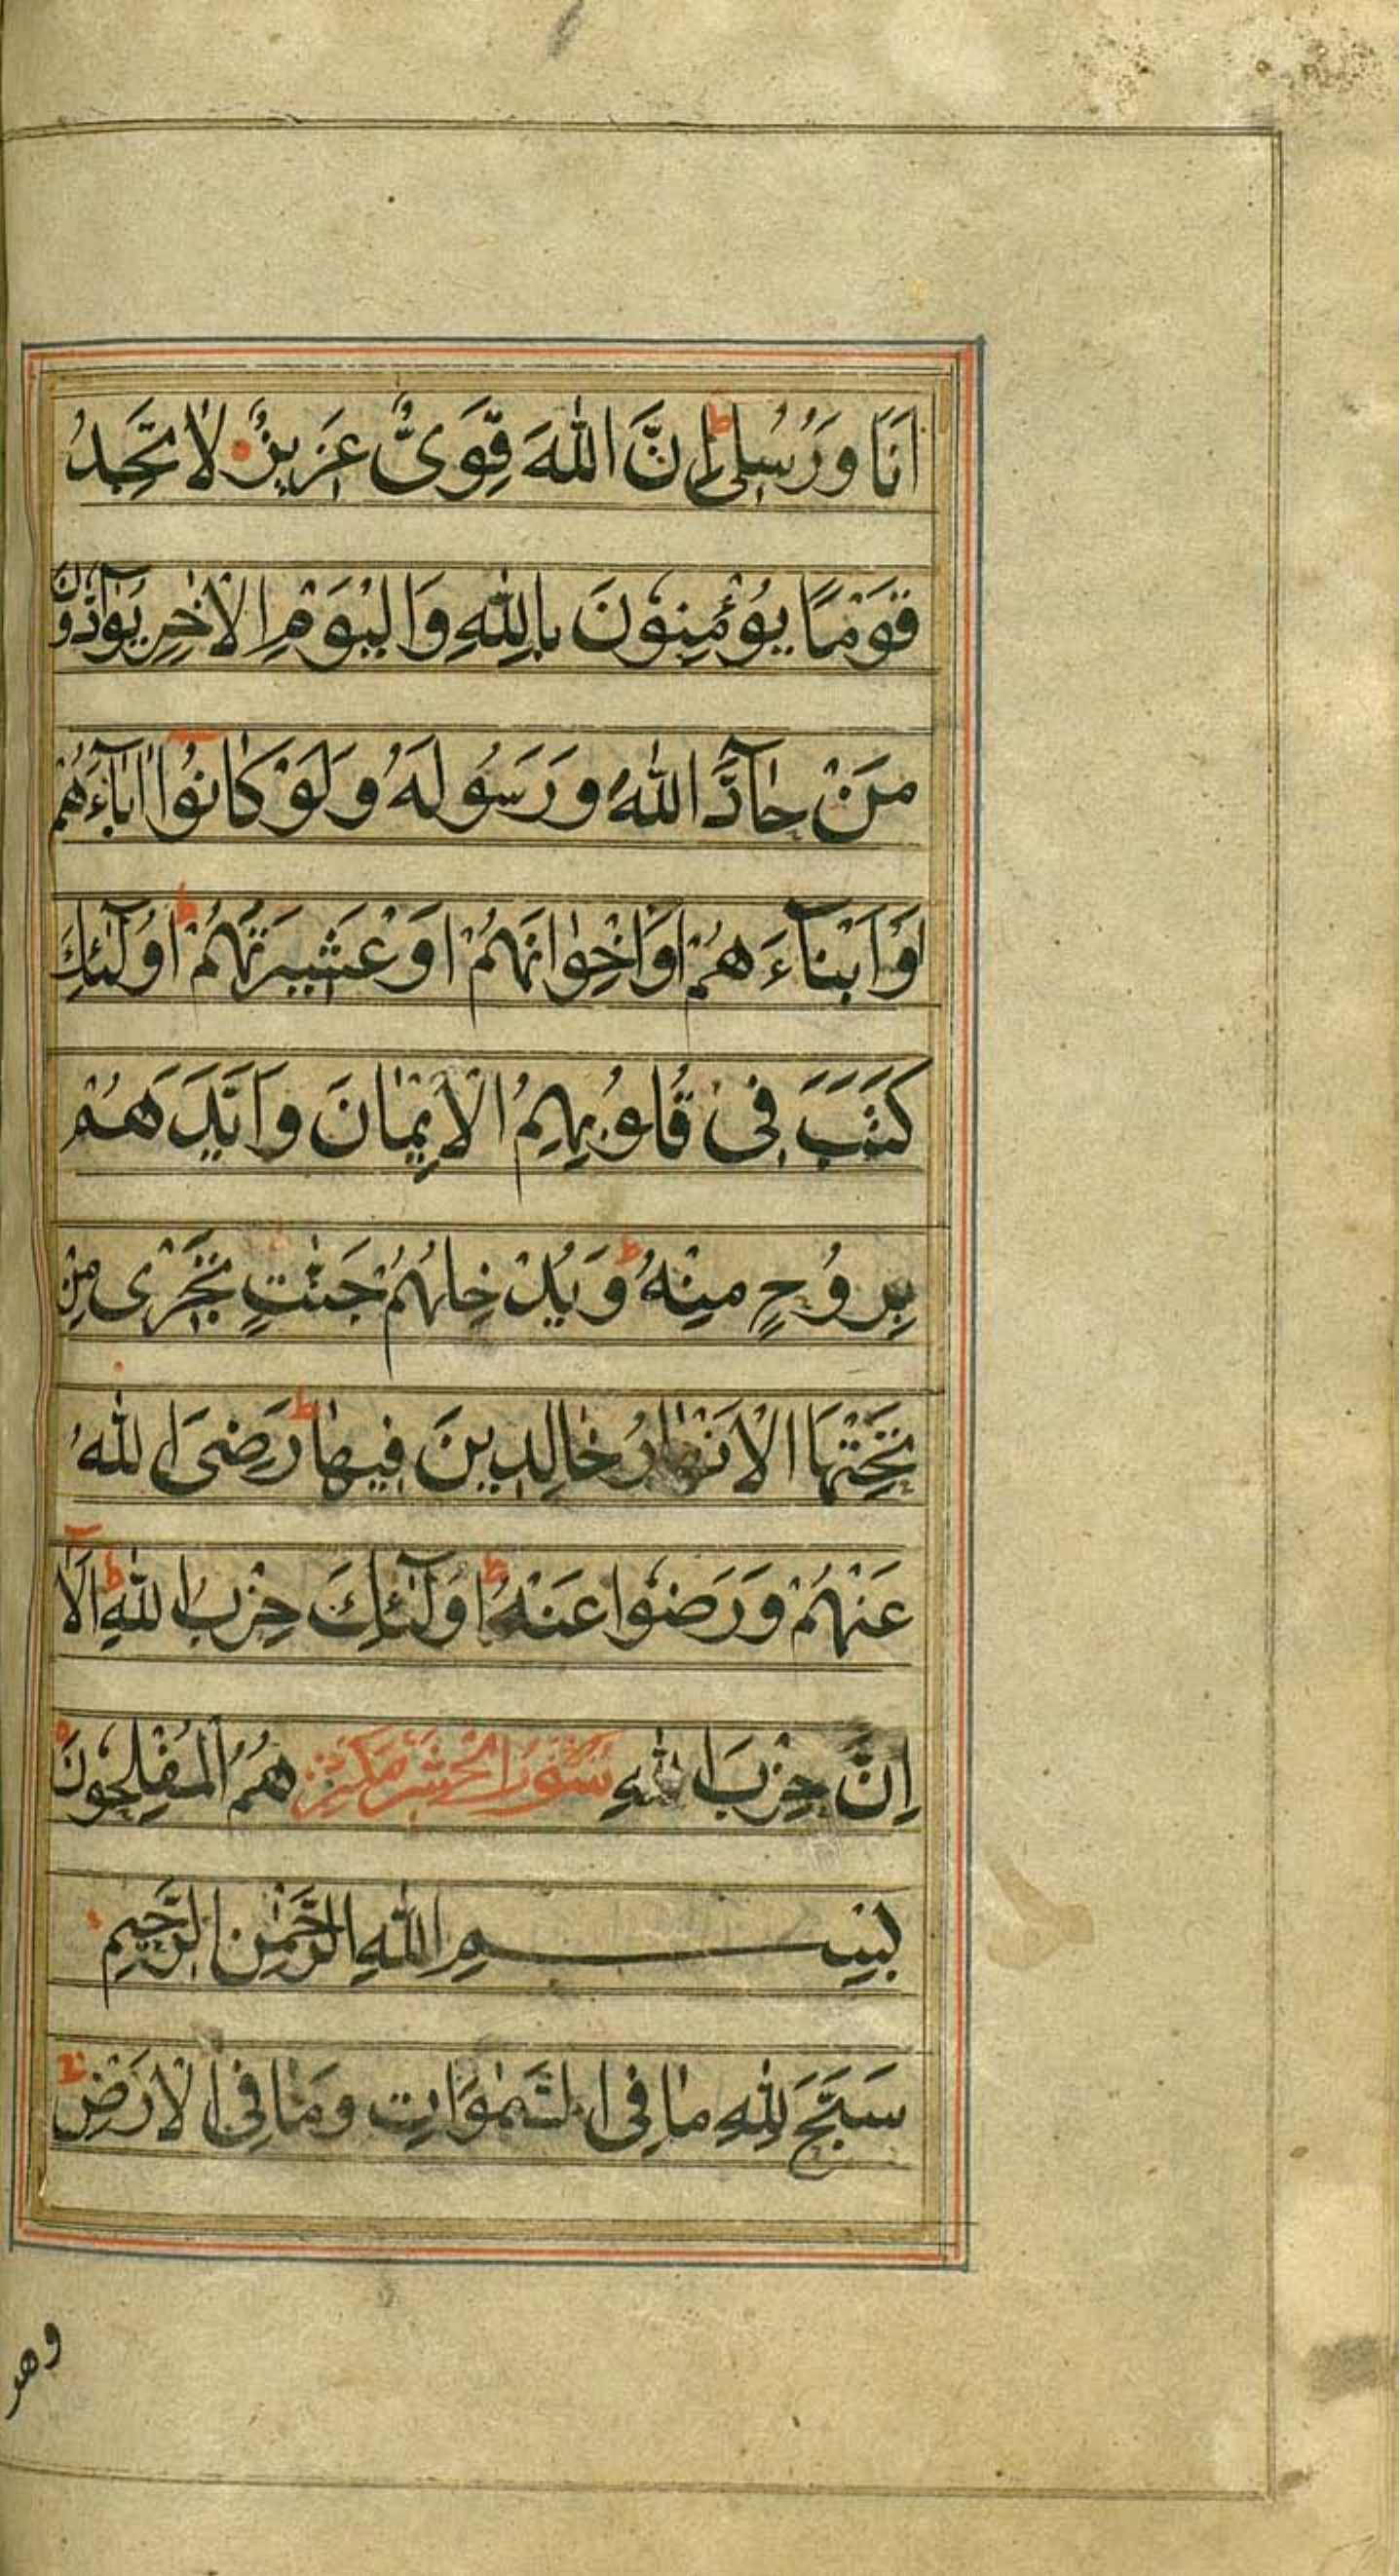 اَنَا وَرُسُلِىْ ط اِنَّ اللّٰهَ قَوِىٌّ عَزِيزٌ لَا تَجِدُ
قَوْمًا يُؤْمِنُونَ بِاللّٰهِ وَالْيَوْمِ الْاٰخِرِ يُوَآدُّونَ
مَنْ حَآدَّ اللّٰهَ وَرَسُولَهُ وَلَوْ كَانُوْا اٰبَآءَهُمْ
اَوْ اَبْنَآءَهُمْ اَوْ اِخْوٰانَهُمْ اَوْ عَشِيرَتَهُمْ ط اُولٰٓئِكَ
كَتَبَ فِى قُلُوبِهِمُ الْاِيْمٰانَ وَاَيَّدَهُمْ
بِرُوُحٍ مِنْهُ ط وَيُدْخِلُهُمْ جَنّٰتٍ تَجْرٖى مِنْ
تَحْتِهَا الْاَنْهٰارُ خٰالِدِينَ فِيهٰا ط رَضِىَ اللّٰهُ
عَنْهُمْ وَرَضُوا عَنْهُ ط اُولٰٓئِكَ حِزْبُ اللّٰهِ ط اَلَآ
اِنَّ حِزْبَ اللّٰهِ هُمُ الْمُفْلِحُونَ
سُوْرَةُ الْحَشْر
بِسْمِ اللّٰهِ الرَّحْمٰنِ الرَّحِيمِ
سَبَّحَ لِلّٰهِ مٰا فِى السَّمٰوَاتِ وَمٰا فِى الْاَرْضِ
وهو